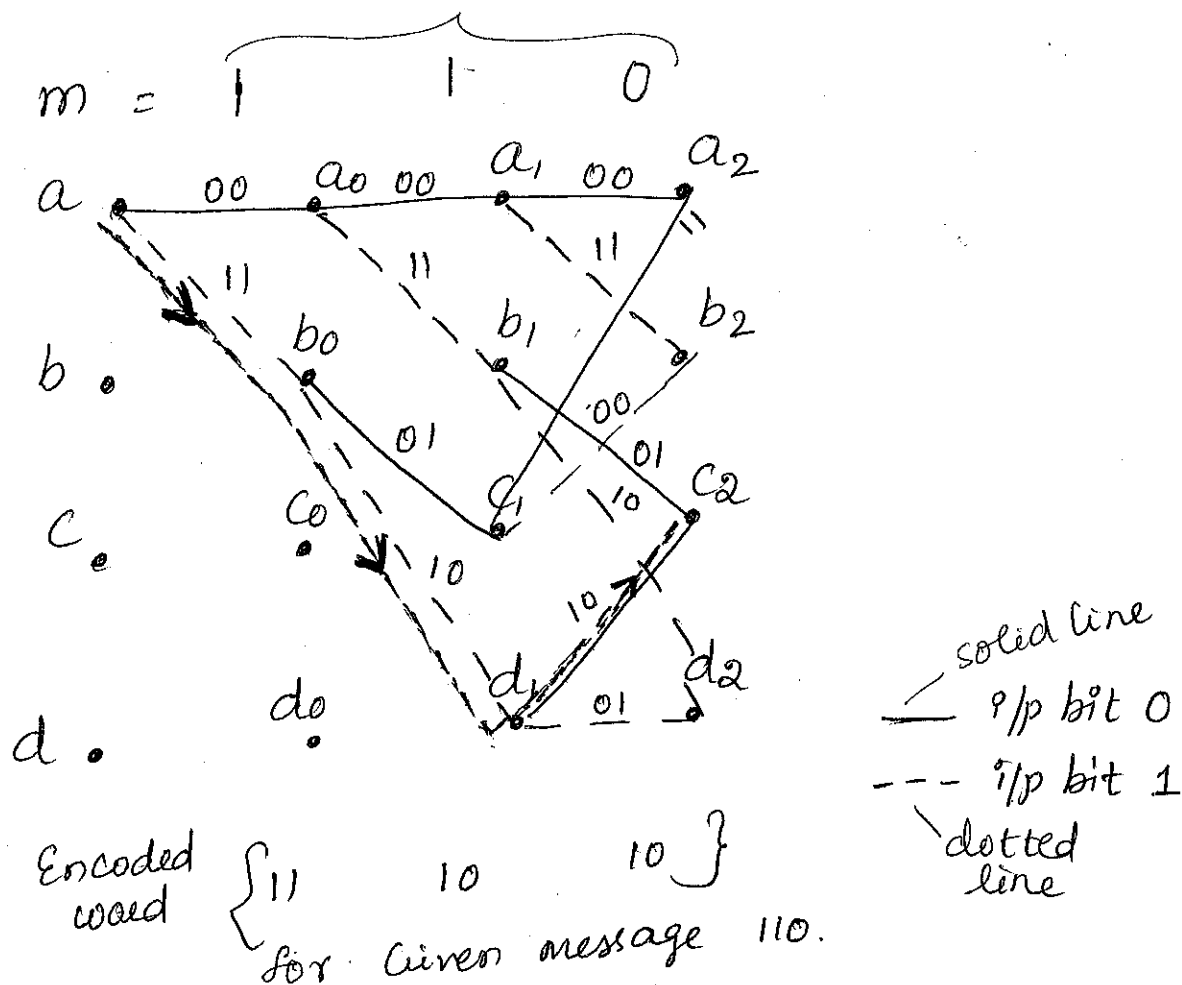 m = 1 1 0
a 00 a0 00 a1 00 a2
11 11 11 11
b b0 b1 b2
01 00 01
c c0 c1 10 c2
10 10
d d0 d1 01 d2
solid line
i/p bit 0
i/p bit 1
dotted
line
Encoded
word { 11 10 10 }
for Given message 110.